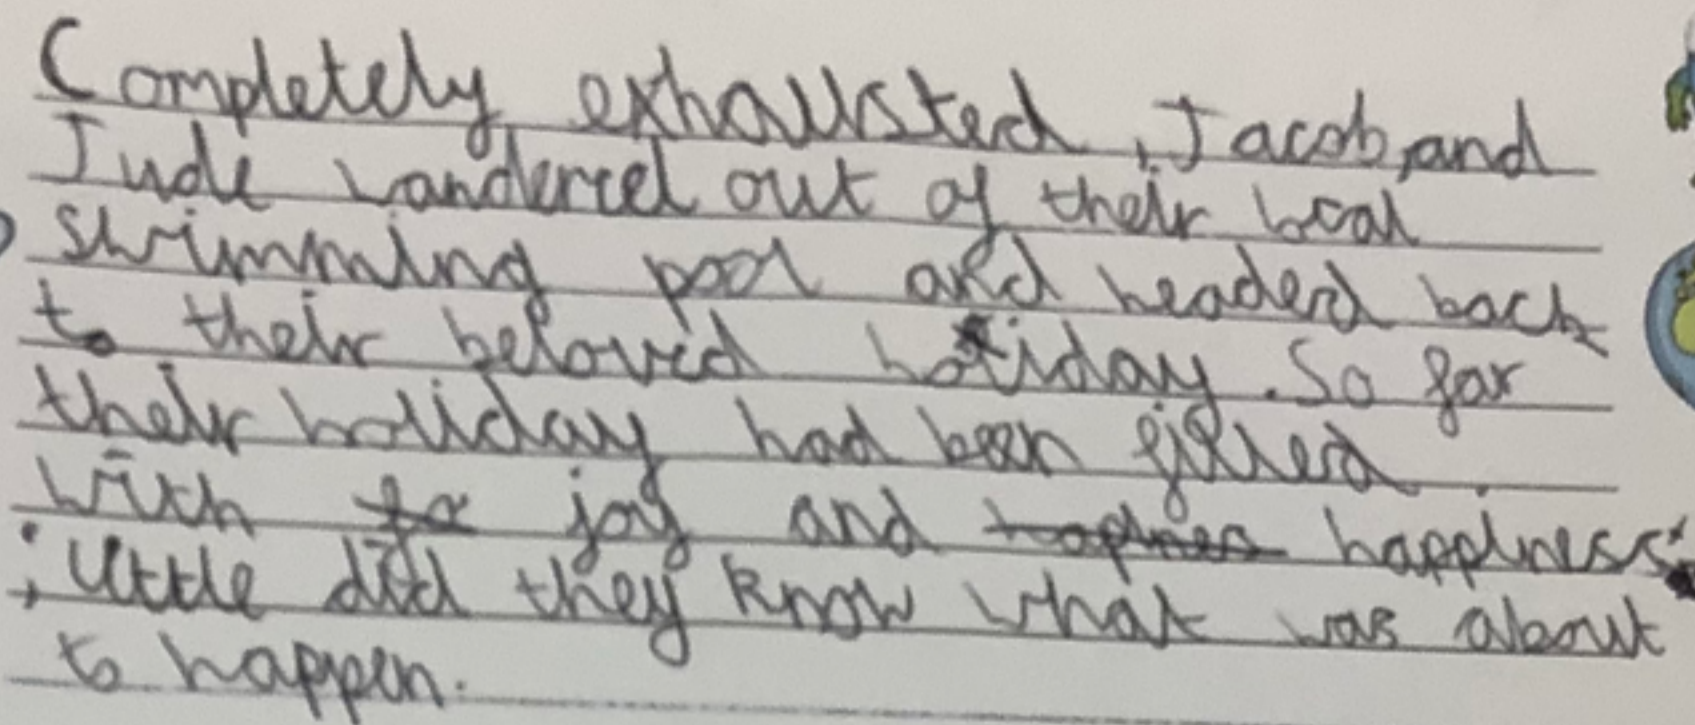 Completely exhausted, Jacob and
Jude wandered out of their local
swimming pool and headed back
to their beloved holiday. So far
their holiday had been filled
with joy and happiness
; little did they know what was about
to happen.